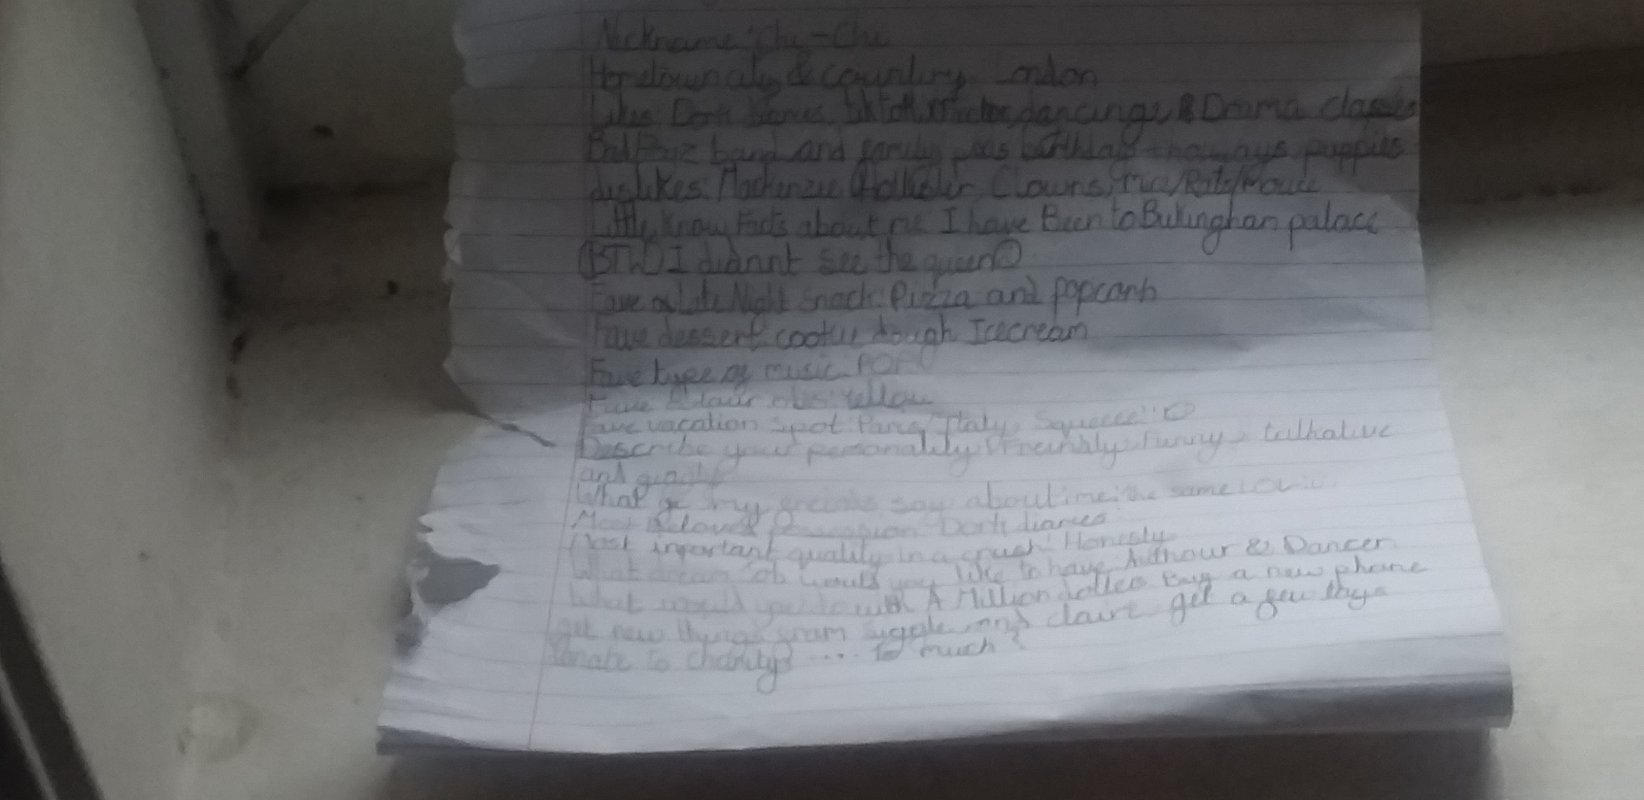 Nickname: Chi-Chi
Hometown city & country London
Likes: Dork Diaries, tiktok, dancing, & Drama classes
band and family birthday puppies
dislikes: Mackenzie Hollister Clowns,
Little Know Facts about me I have Been to Bukinghan palace
(BTW) I didnnt see the queen
Fave Late Night Snack: Pizza and popcorn
Fave dessert: cookie dough Icecream
Fave type of music: POP
Fave Yellow
Fave vacation spot Paris/Italy, Squeeee!!
Describe your personality: funny, talkative
and
What my say about me: the same
Most Dork diaries
Most important quality in a crush: Honesty
What dream job would you like to have Authour & Dancer
What would you do with A Million dollers Buy a new phone
get new things and claire get a few
Donate to charity? .... To much?